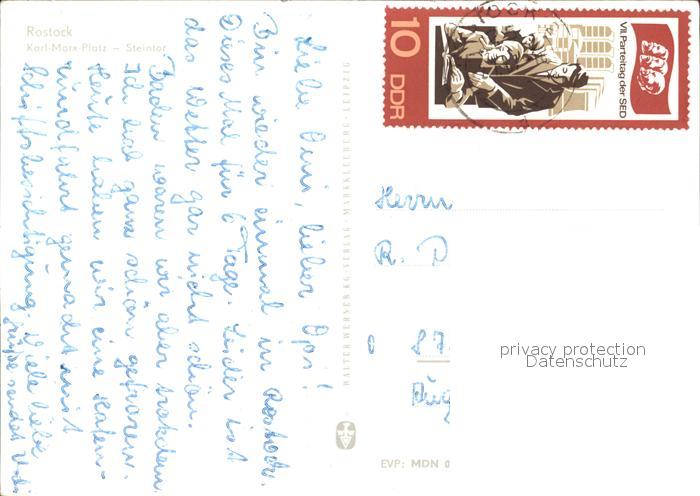 Rostock
Karl-Marx-Platz – Steintor
Liebe Omi, lieber Opi!
Bin wieder einmal in Rostock.
Dieses Mal für 6 Tage. Leider ist
das Wetter gar nicht schön.
Baden waren wir aber trotzdem.
Ich hab ganz schön gefroren.
Heute haben wir eine Hafen-
rundfahrt gemacht mit
Schiffsbesichtigung. Viele liebe
Grüße sendet
WALTER WERNER KG · VERLAG · MARKKLEEBERG · LEIPZIG
10
DDR
VII. Parteitag der SED
Herrn
R. D
87
EVP: MDN 0
privacy protection
Datenschutz